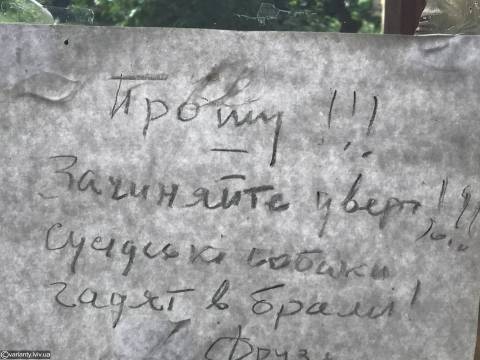 Прошу !!!
Зачиняйте двері !!!
сусідські собаки
гадят в брамі!
Друзі
©varianty.lviv.ua